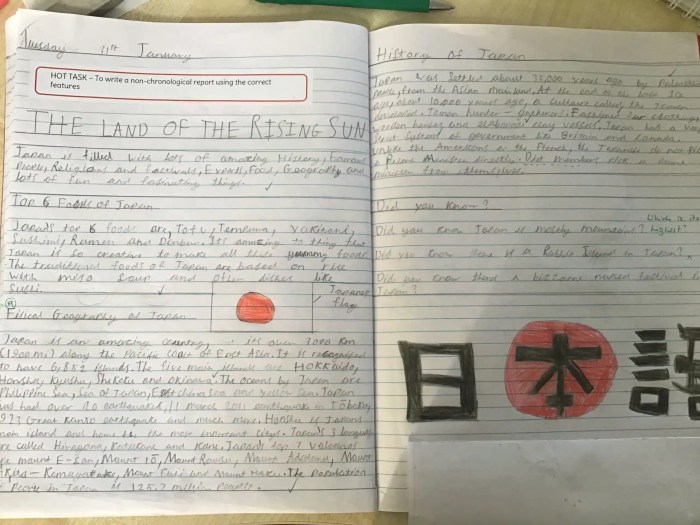 Tuesday 11th January
HOT TASK - To write a non-chronological report using the correct
features
THE LAND OF THE RISING SUN
Japan is filled with lots of amazing History, Famous
People, Religions and Festivals, Events, Food, Geography and
lots of fun and fascinating things.
Top 6 Foods of Japan
Japan's top 6 foods are, Tofu, Tempura, Yakinori,
Sashimi, Ramen and Donburi. It's amazing to thing that
Japan is so creative to make all these yummy foods.
The traditional foods of Japan are based on rice
with miso soup and other dishes like
Sushi.
Japanese
flag
Geography of Japan
Japan is an amazing country, it's over 3000 Km
(1,900 mi) along the Pacific coast of East Asia. It is recognised
to have 6,852 islands. The five main islands are HOKKaido,
Honshu, Kyushu, and Okinawa. The oceans by Japan are
Philippine Sea, Sea of Japan, East China Sea and Yellow Sea. Japan
had over 20 earthquakes, 11 march 2011 earthquake in
Great Kanto earthquake and much more. Honshu is Japans
main island and home to the most important citys. Japan's 3
are called Hiragana, Katakana and Kanji. Japan's top 7 volcanoes
are mount E-San, Mount Mount Mount
Mount and Mount The population
people in Japan is 125.7 million people.
History of Japan
Japan was settled about 35,000 years ago by
people, from the Asian mainland. At the end of the
age, about 10,000 years ago, a culture called the Jomon
Jomon hunter - gatherers Fashioned fur clothing,
wooden houses and elaborate clay vessels. Japan had a
System of government like Britain and Canada.
Unlike the Americans or the French, the Japanese do not
a Prime Minister directly. Diet members pick a prime
minister from themselves.
Did you Know?
Did you Know Japan is mostly mountains? highest
Did you know there is a Rabbit Island in Japan?
Did you know there a bizzare naked festival in
Japan?
日本語